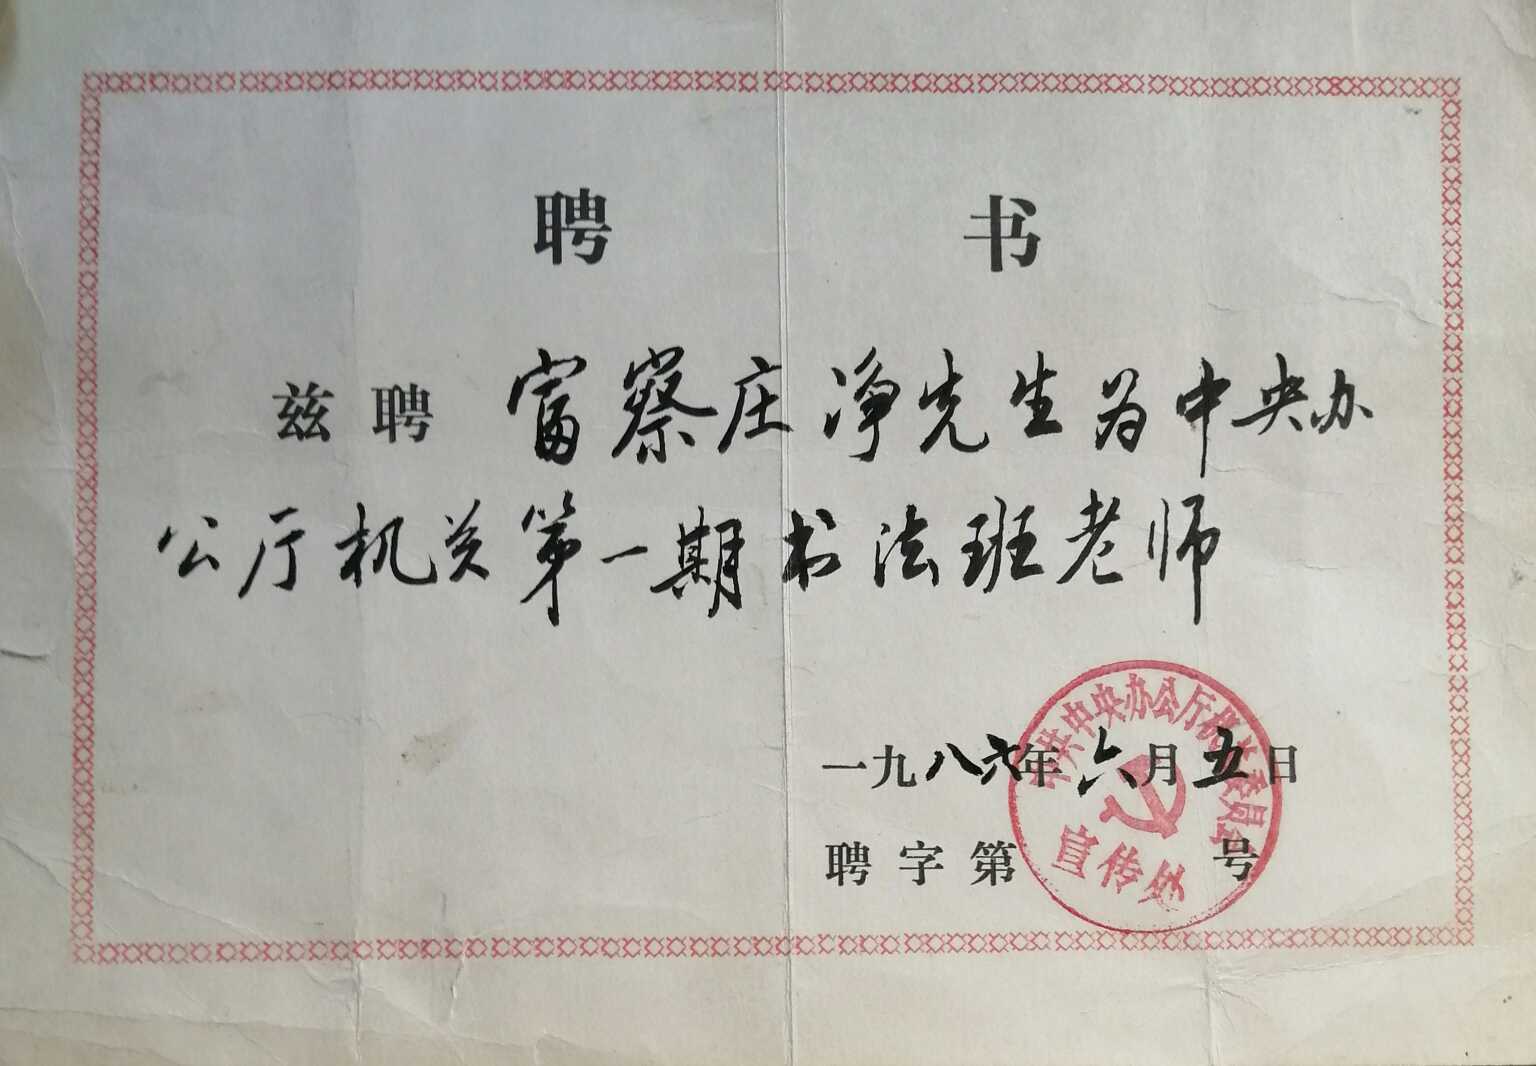 聘 书
兹聘 富察庄净先生为中央办
公厅机关第一期书法班老师
一九八六年六月五日
聘字第 号
中共中央办公厅机关委员会
宣传处